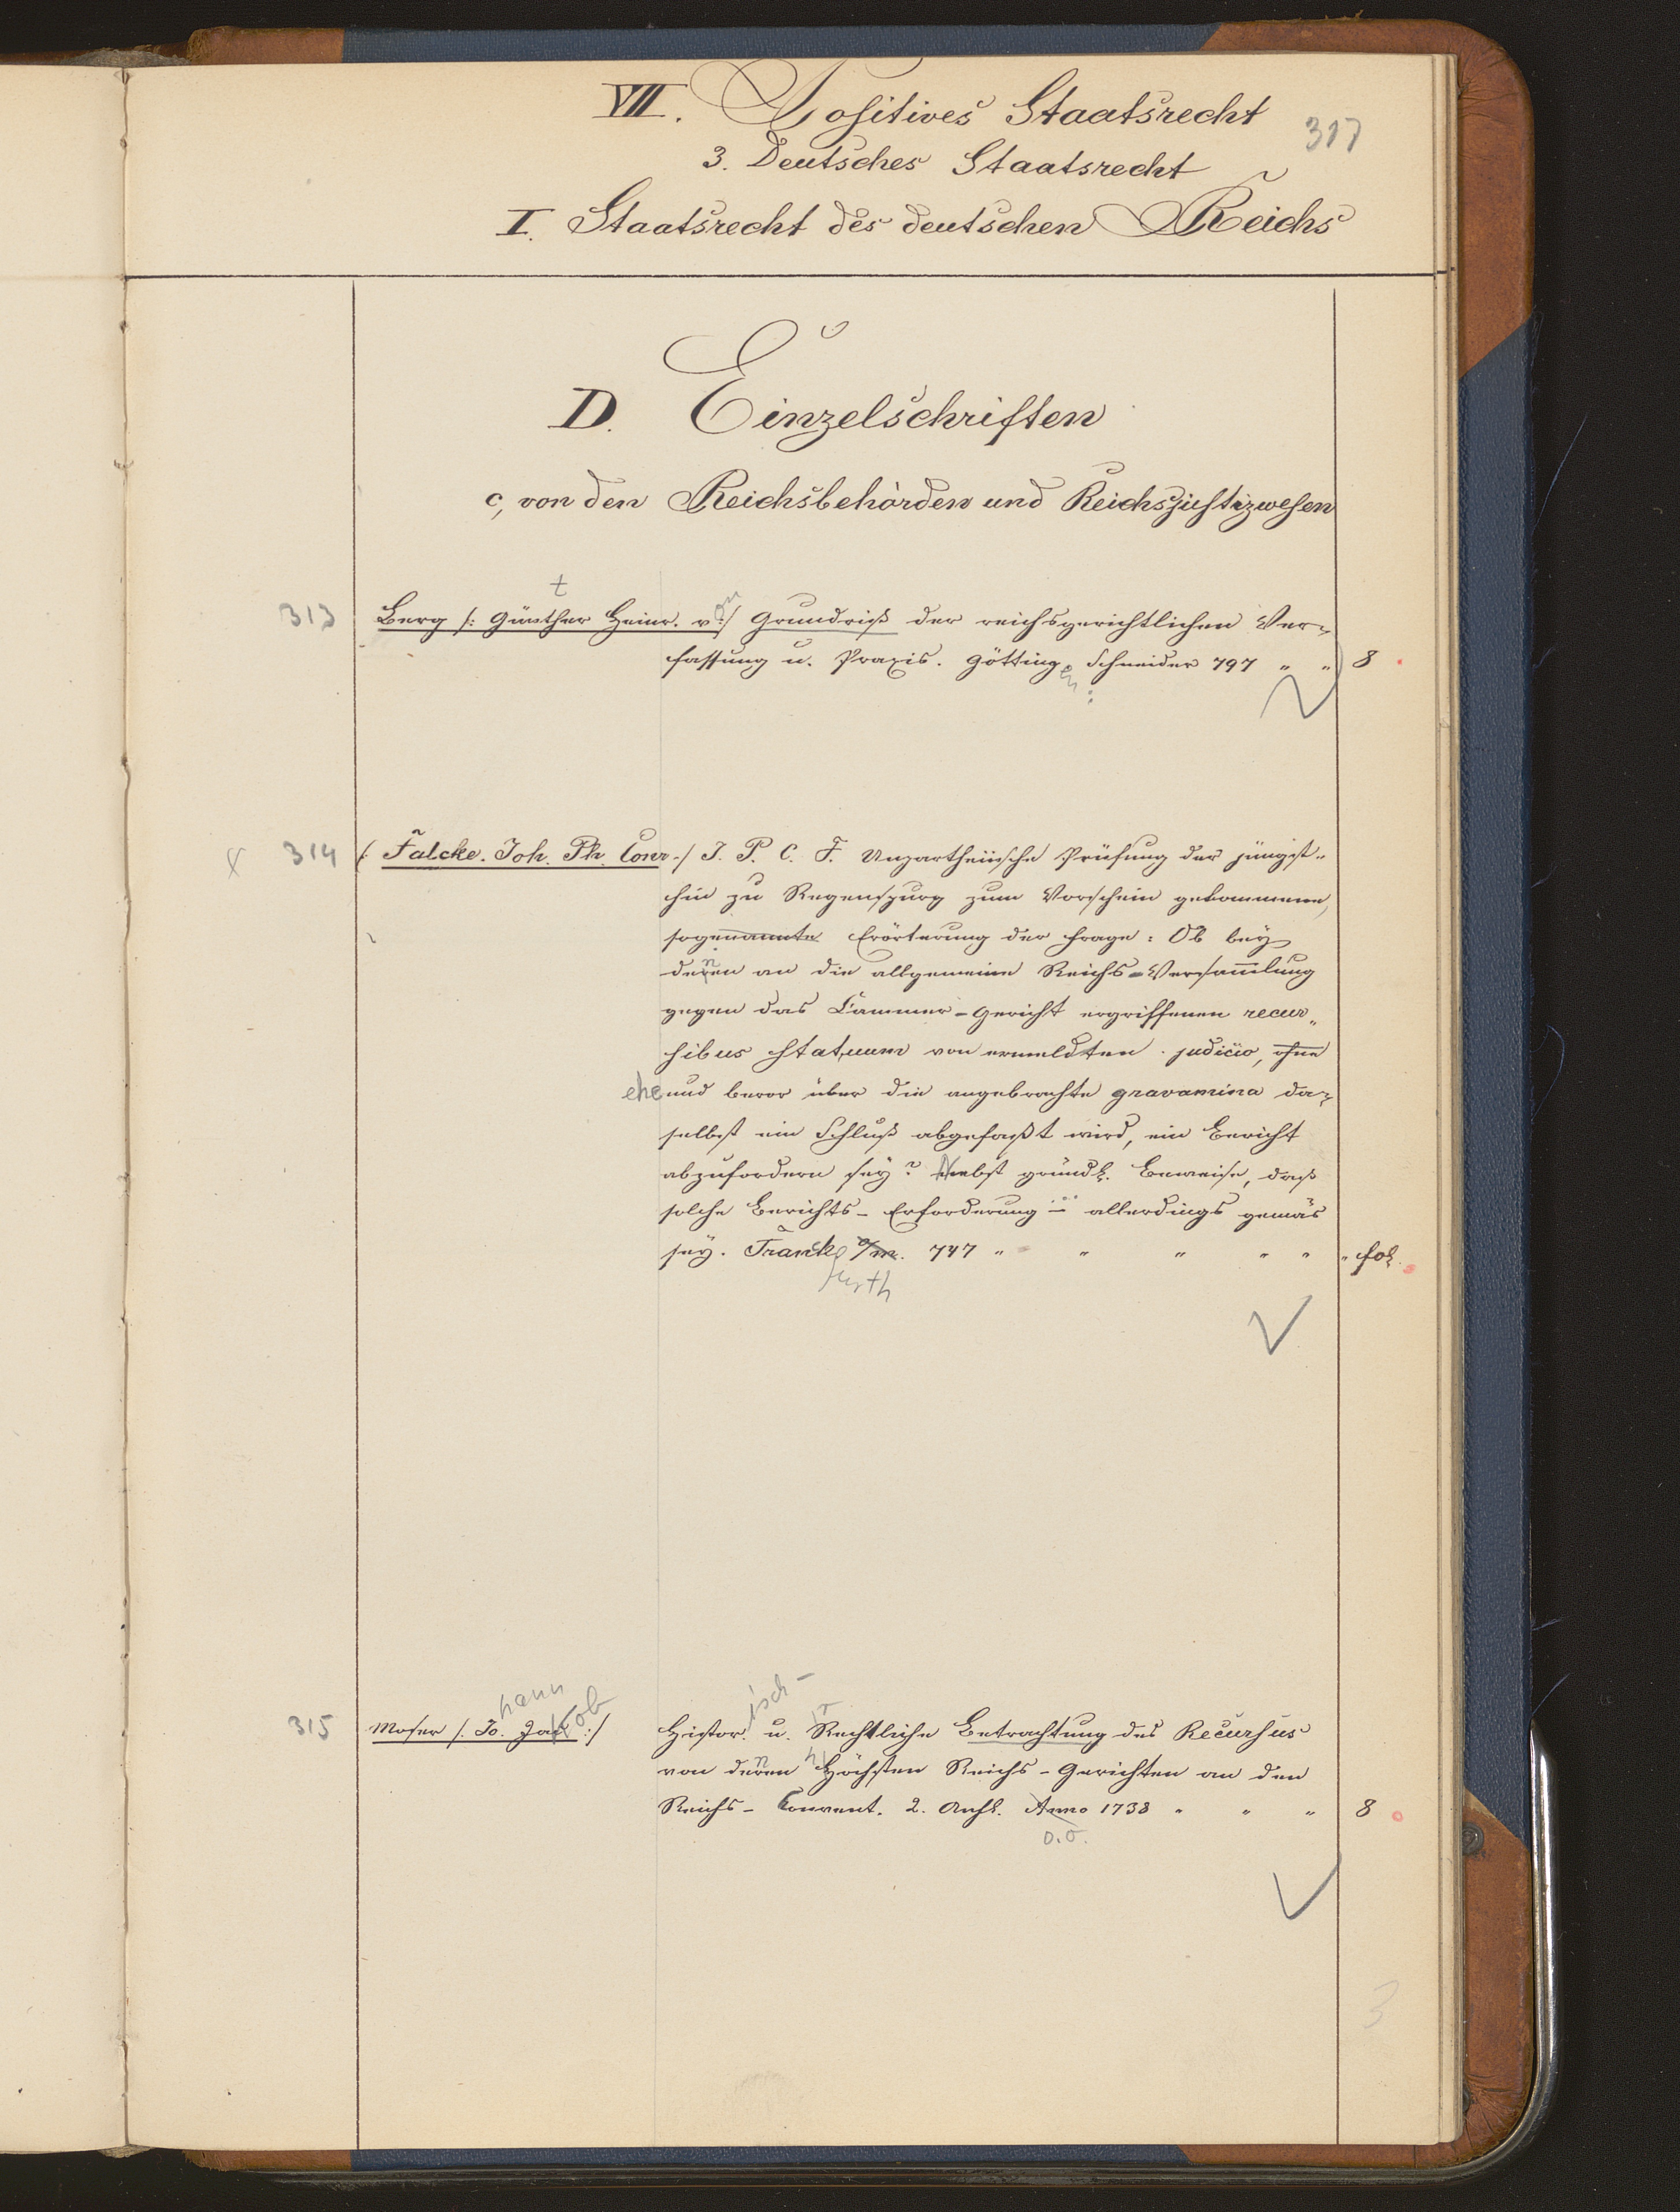 VII. Positives Staatsrecht
317
3. Deutsches Staatsrecht
I. Staatsrecht des deutschen Reichs
D. Einzelschriften
c, von den Reichsbehörden und Reichsjustizwesen
t
313 Berg /: Günther Heinr. v. :/ Grundriß der reichsgerichtlichen Ver-
on
fassung u. Praxis. Götting Schneider 797 " " 8
en :
x 314 /: Falcke. Joh. Ph. Conr. / J. P. C. F. Unpartheiische Prüfung der jüngst"
hin zu Regenspurg zum Vorschein gekommene,
sogenannte Erörterung der Frage: Ob bey
denen an die allgemeine Reichs-Versam̅lung
gegen das Cammer-Gericht ergriffenen recur"
sibus statuum von ermeldten judicio, ohne
ehe und bevor über die angebrachte gravamina da-
selbst ein Schluß abgefaßt wird, ein Bericht
abzufordern sey? Nebst gründl. Beweise, daß
solche Berichts-Erforderung allerdings gemäs
sey. Franck a/m. 747 " " " " " " fol.
furth
hann
isch -
315 Moser /: Jo. Jak :/ Histor. u. Rechtliche Betrachtung des Recursus
ob
von denen Höchsten Reichs-Gerichten an den
Reichs-Convent. 2. Aufl. Anno 1738 " " " 8
o. O.
3